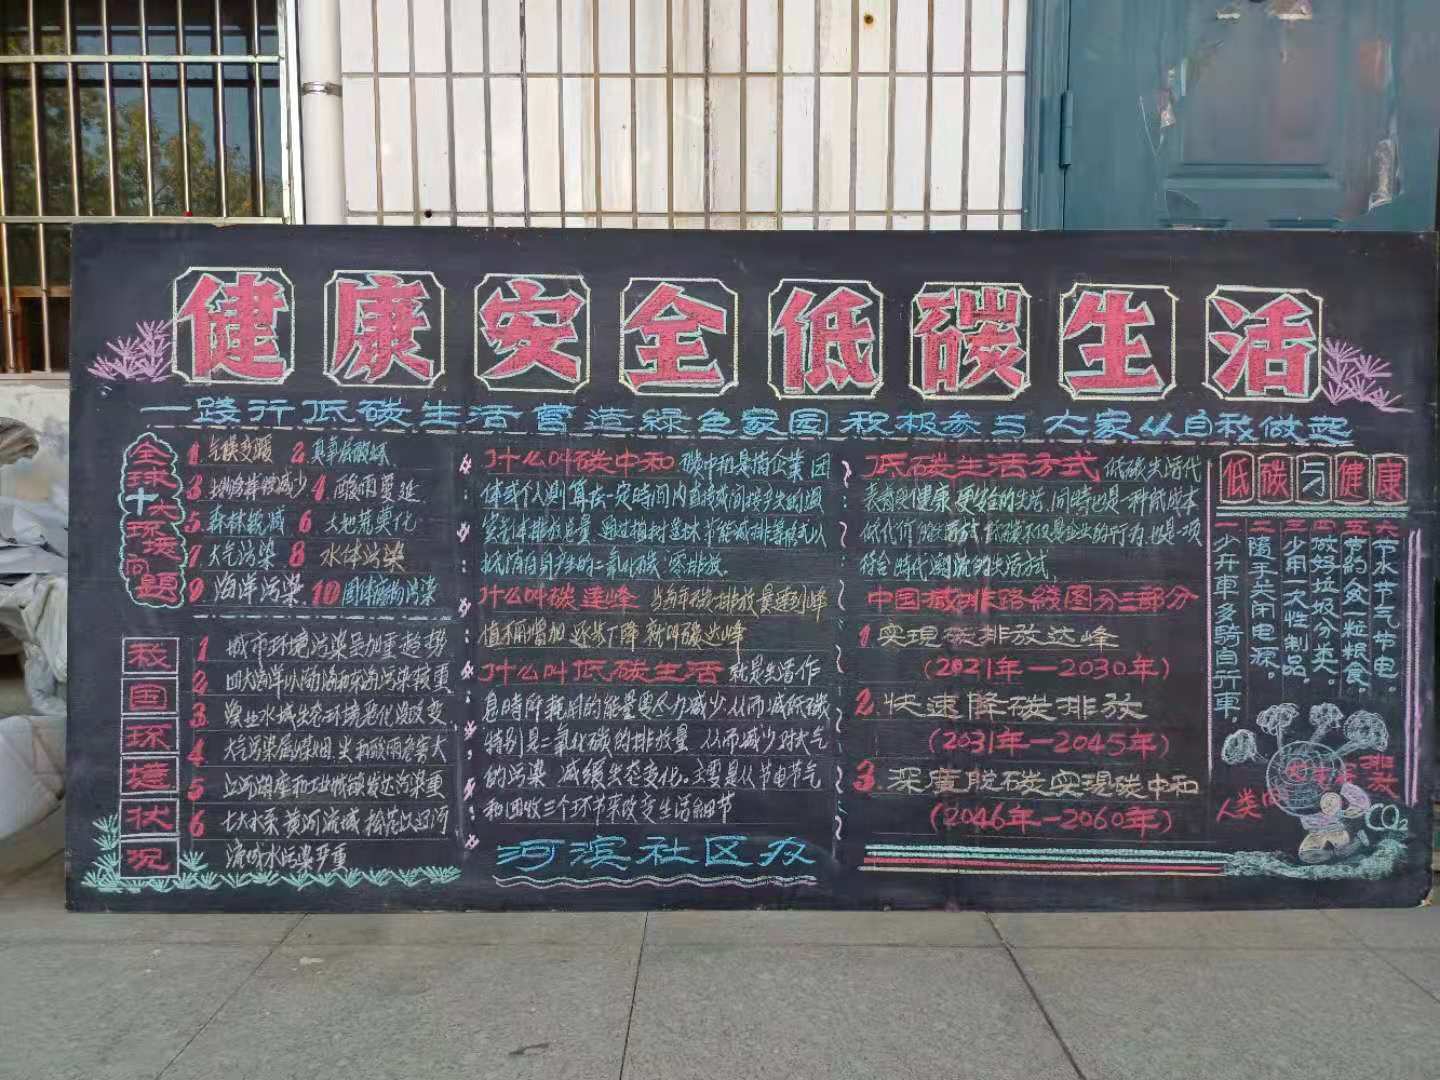 健康安全低碳生活
一踐行低碳生活营造绿色家园积极参与大家从自我做起
全球十大环境问题
1.气候变暖 2.臭氧层破坏
3 生物多样性减少 4 酸雨蔓延
5 森林锐减 6 土地荒漠化
7 大气污染 8 水体污染
9 海洋污染 10 固体废物污染
我国环境状况
1 城市环境污染呈加重趋势
2 四大海洋以渤海和东海污染较重
3 渔业水域生态环境恶化没改变
4 大气污染属煤烟
5 江河湖库和
6 七大水系黄河流域松花江辽河
流域水污染严重
什么叫碳中和 碳中和是指企業团
体或个人测算在一定时间内直接或间接产生的温
室气体排放总量 通过植树造林节能减排等格式以
抵消自身产生的二氧化碳零排放
什么叫碳達峰 当年碳排放量達到峰
值不再增加 逐步下降 就叫碳达峰
什么叫低碳生活 就是生活作
息時所耗用的能量要尽力减少从而减低碳
特别是二氧化碳的排放量 从而减少对大气
的污染 减缓生态变化。主要是从节电节气
和回收三个环节来改变生活細节
河滨社区办
低碳生活方式 低碳生活代
表着更健康 更 的生活,同時也是一种低成本
低代价的 方式 低碳不仅是企业的行为也是一项
符合时代潮流的生活方式
中国减排路线图分三部分
1 实現碳排放达峰
(2021年—2030年)
2. 快速降碳排放
(2031年—2045年)
3. 深度脱碳实現碳中和
(2046年—2060年)
低碳与健康
一少开車多騎自行車。
二隨手关闭电源。
三少用一次性制品。
四做好垃圾分类。
五节约食一粒粮食。
六节水节气节电。
人类
排放
CO₂